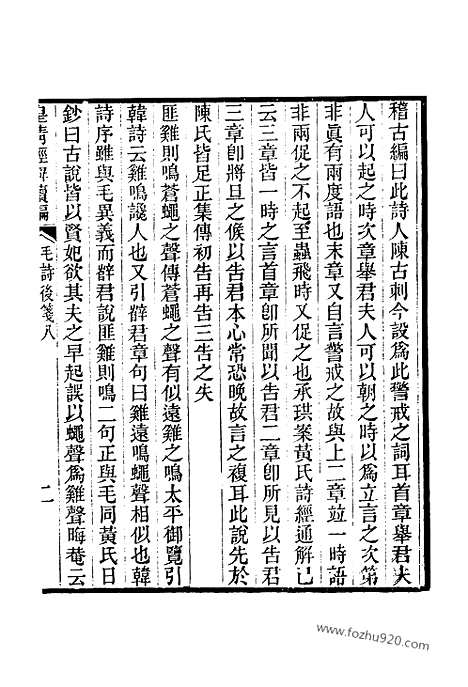 稽古編曰此詩人陳古刺今設爲此警戒之詞耳首章舉君夫
人可以起之時次章舉君夫人可以朝之時以爲立言之次第
非眞有兩度語也末章又自言警戒之故與上二章竝一時語
非兩促之不起至蟲飛時又促之也承珙案黃氏詩經通解已
云三章皆一時之言首章卽所聞以告君二章卽所見以告君
三章卽將旦之候以告君本心常恐晚故言之複耳此說先於
陳氏皆足正集傳初告再告三告之失
匪雞則鳴蒼蠅之聲傳蒼蠅之聲有似遠雞之鳴太平御覽引
韓詩云雞鳴讒人也又引薛君章句曰雞遠鳴蠅聲相似也韓
詩序雖與毛異義而薛君說匪雞則鳴二句正與毛同黃氏日
鈔曰古說皆以賢妃欲其夫之早起誤以蠅聲爲雞聲晦菴云
皇淸經解續編
毛詩後箋八
二
www.fozhu920.com